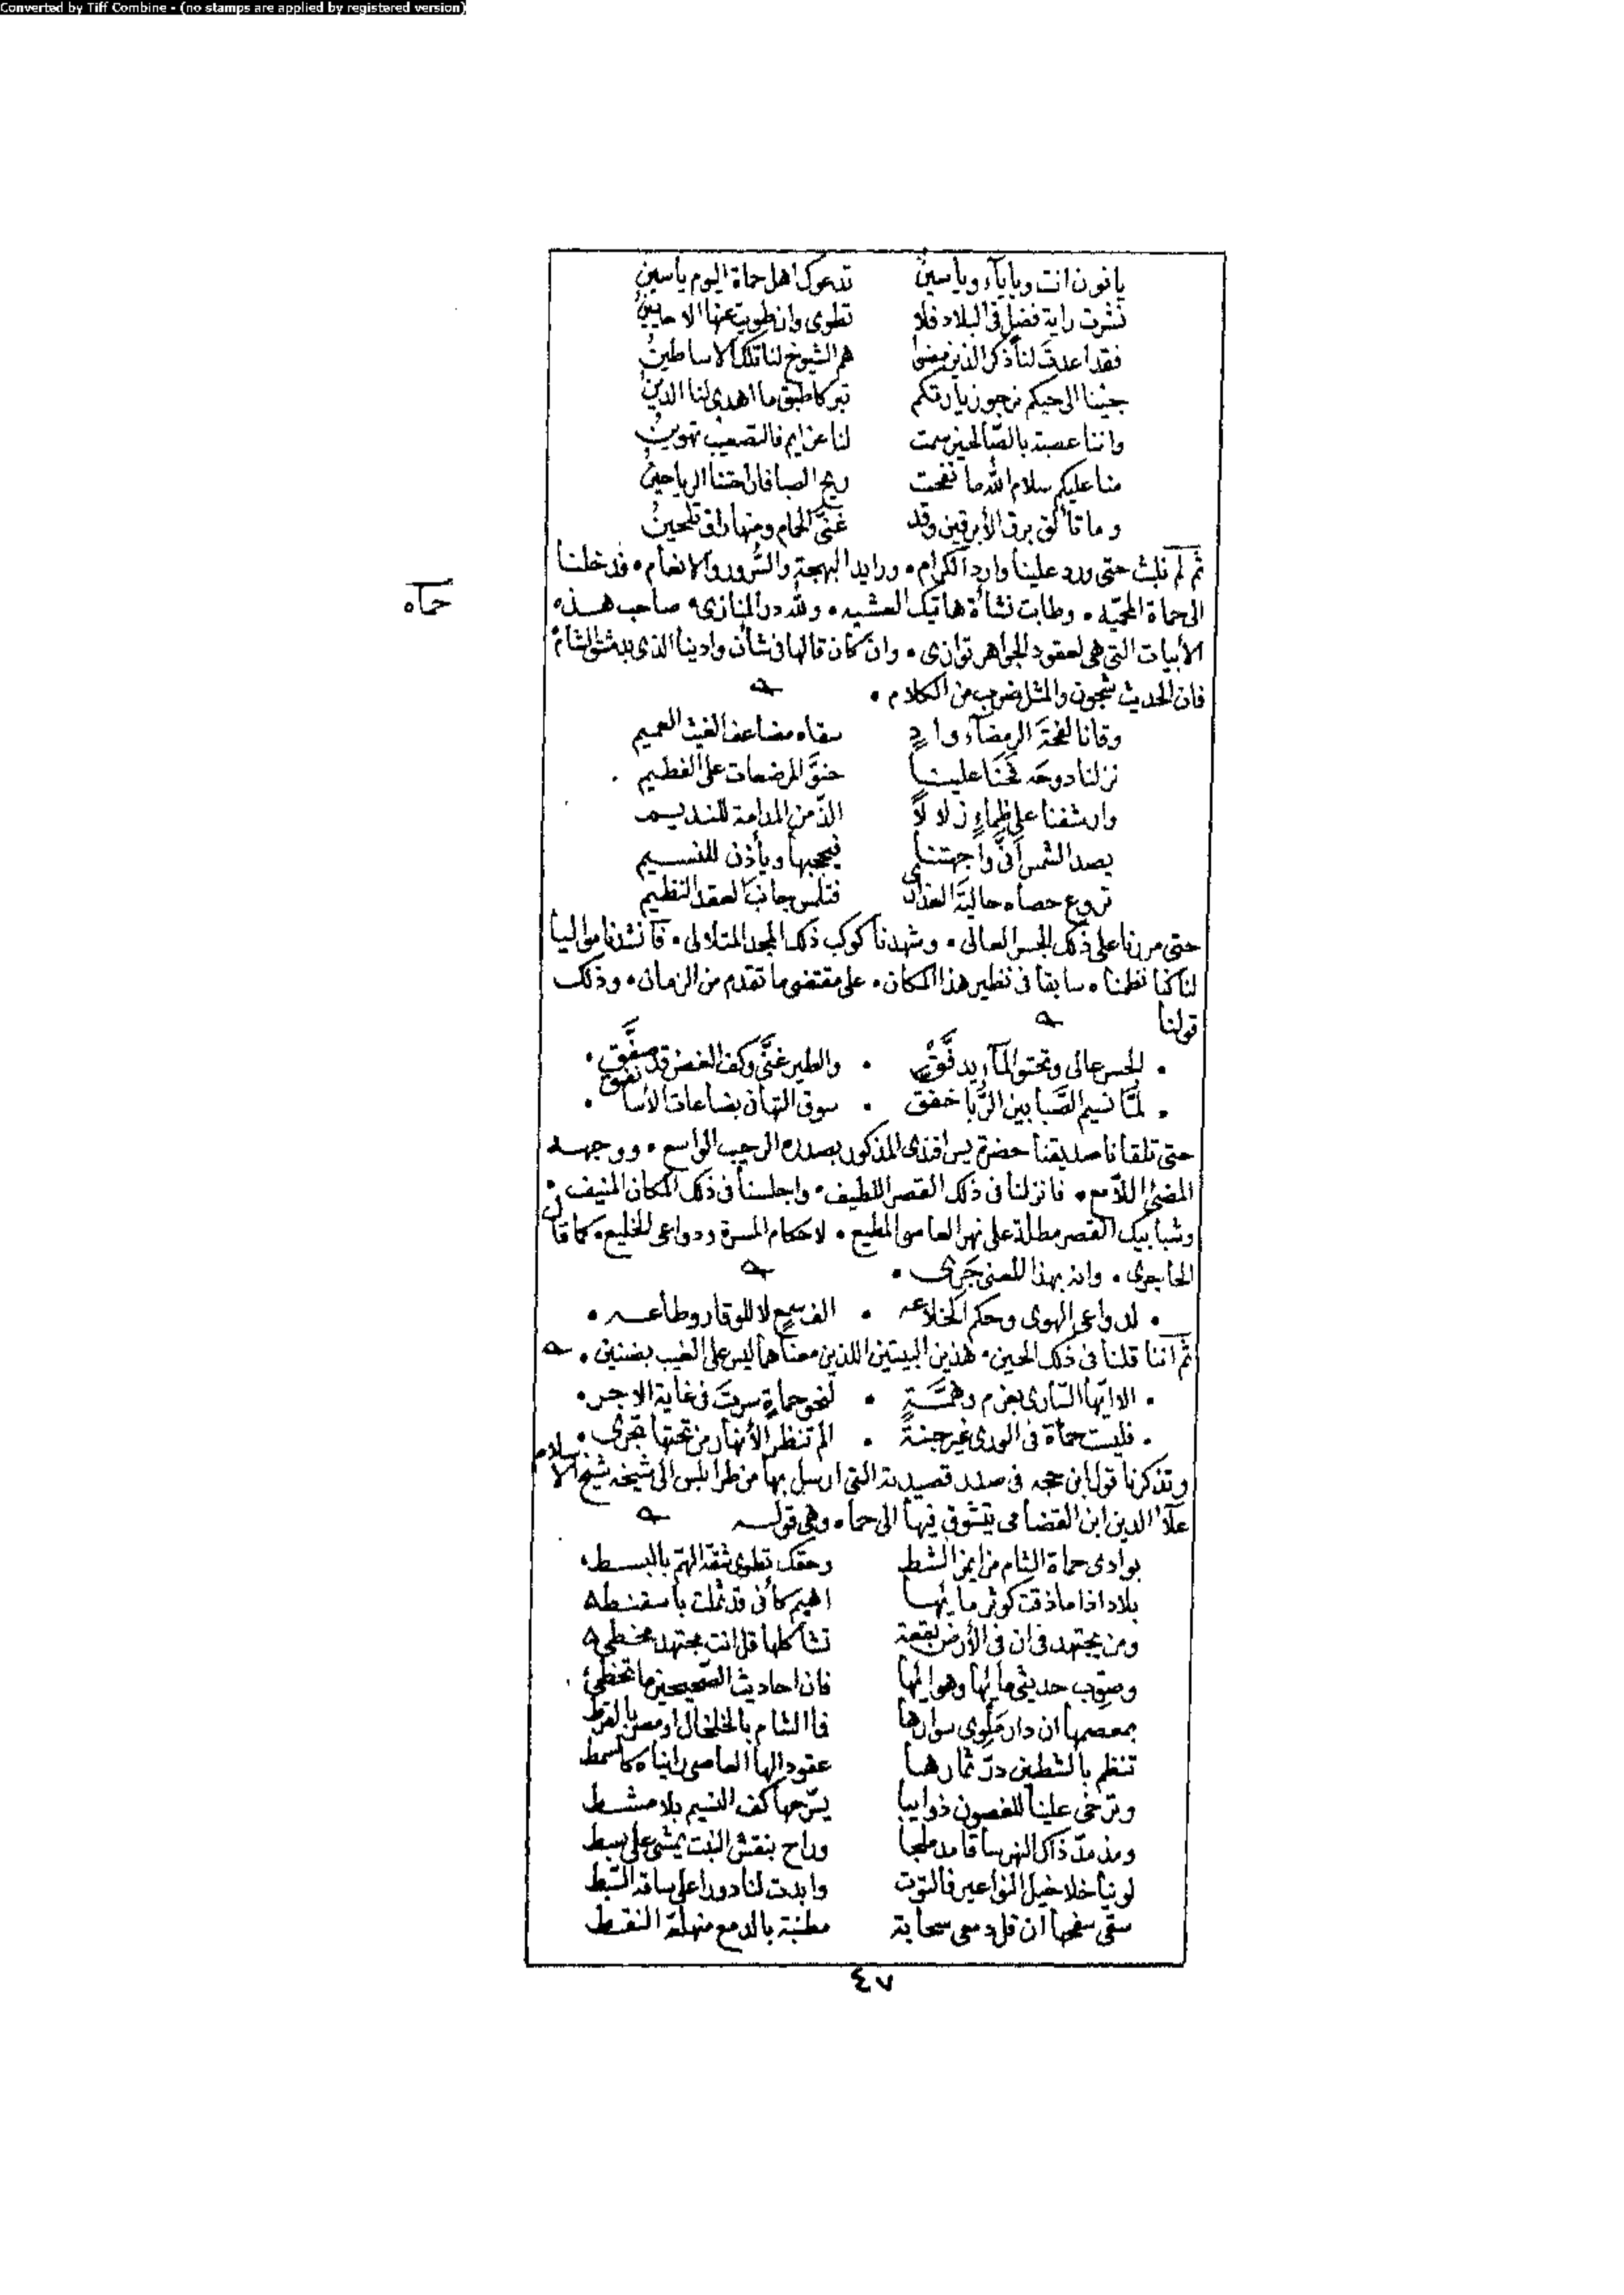 Converted by Tiff Combine - (no stamps are applied by registered version)
يا نون انت ويا ياء ويا سين تدعوك اهل حماة اليوم ياسين
نشرت راية فضل في البلاد فلا تطوى وان طويت عنها الاحايين
فقد اعدت لنا ذكر الذين مضوا هم الشيوخ لنا تلك الاساطين
جئنا الى حيكم نرجو زيارتكم تبركا طبق ما اهدى لنا الدين
واننا عصبة بالصالحين سمت لنا عزايم فالتصعيب تهوين
منا عليكم سلام الله ما نفحت ريح الصبا فاتحتنا الرياحين
وما تألق برق الأبرقين وقد غنى الحمام ومنها راق تلحين
ثم لم نلبث حتى ورد علينا وارد الكرام • ورايد البهجة والسرور والانعام • فدخلنا
حماه
الى حماة المحميّه • وطابت نشأة هاتيك العشيه • ولله در المنازى • صاحب هذه
الأبيات التي هي لعقود الجواهر توازى • وان كان قالها في شأن وادينا الذي بدمشق الشام
فان الحديث شجون والمثل ضرب من الكلام •
وقانا لفحة الرمضآء وادٍ سقاه مضاعف الغيث العميم
نزلنا دوحه فحنا علينا حنوّ المرضعات على الفطيم
وارشفنا على ظماءٍ زلالاً الذّ من المدامة للنديم
يصد الشمس أنّى واجهتنا فيحجبها ويأذن للنسيم
تروع حصاه حالية العذارى فتلمس جانب العقد النظيم
حتى مررنا على ذلك الجسر العالى • وشهدنا كوكب ذلك المجد المتلالى • فأنشدنا مواليا
لنا كنا نظمناه سابقا في نظير هذا المكان • على مقتضى ما تقدم من الزمان • وذلك
قولنا
• الجسر عالى وتحتو المآ يدفّق • والطير غنّى وكف الغصن قد صفّق •
• لمّا نسيم الصّبا بين الرّبا خفق • سوق التهانى بضاعات الأسا نفق •
حتى تلقانا صديقنا حضرة يس افندى المذكور بصدره الرحيب الواسع • ووجهه
المضئ اللآمع • فانزلنا في ذلك القصر اللطيف • واجلسنا في ذلك المكان المنيف •
وشبابيك القصر مطلة على نهر العاصى المطيع • لاحكام المسرة ودواعى الخليع • كما قال
الحاجرى • وانه بهذا المعنى حرى •
• لدواعى الهوى وحكم الخلاعه • الف سمع لا للوقار وطاعه •
ثم اننا قلنا في ذلك الحين • هذين البيتين اللذين معناهما ليس على الغيب بضنين •
• الا ايها السّارى بعزم وهمّة • لنحو حماة سرت في غاية الاجر •
• فليست حماة في الورى غير جنة • الم تنظر الأنهار من تحتها تجرى •
وتذكرنا قول ابن حجه في صدر قصيدته التي ارسل بها من طرابلس الى شيخه شيخ الاسلام
علآء الدين ابن القضامى يتشوق فيها الى حماه وهي قوله
بوادى حماة الشام من ايمن الشط وحقك تطوى شقة الهمّ بالبسط
بلاد اذا ما ذقت كوثر مايها اهيم كأنى قد ثملت باسفنط
ومن يجتهد في ان في الأرض بقعة تشاكلها قل انت مجتهد مخطى
وصوّب حديثى مايها وهوايها فان احاديث الصحيحين ما تخطئ
بمعصمها ان دار ملوى سوارها فما الشام بالخلخال او مصر بالقرط
تنظم بالشطين درّ ثمارها عقودا لها العاصى رايناه كالسمط
وترخى علينا للغصون ذوايبا يسرّحها كف النسيم بلا مشط
ومذ مدّ ذاك النهر ساقا مدملجا وراح بنقش النبت يمشى على بسط
لوينا خلاخيل النواعير فالتوت وابدت لنا دورا على ساقه السّبط
سقى سفحها ان قل دمعى سحابة مطنبة بالدمع منهلة النقط
٤٧